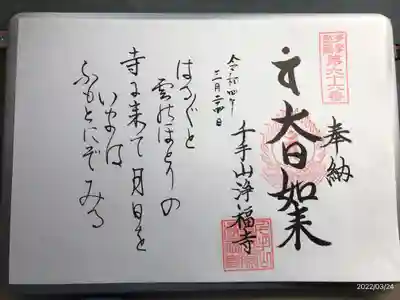 第六十六番
奉納
大日如来
千手山浄福寺
令和四年
三月二十四日
はるぐと
雲のほとりの
寺に来て月日を
いまは
ふもとにぞみる
2022/03/24